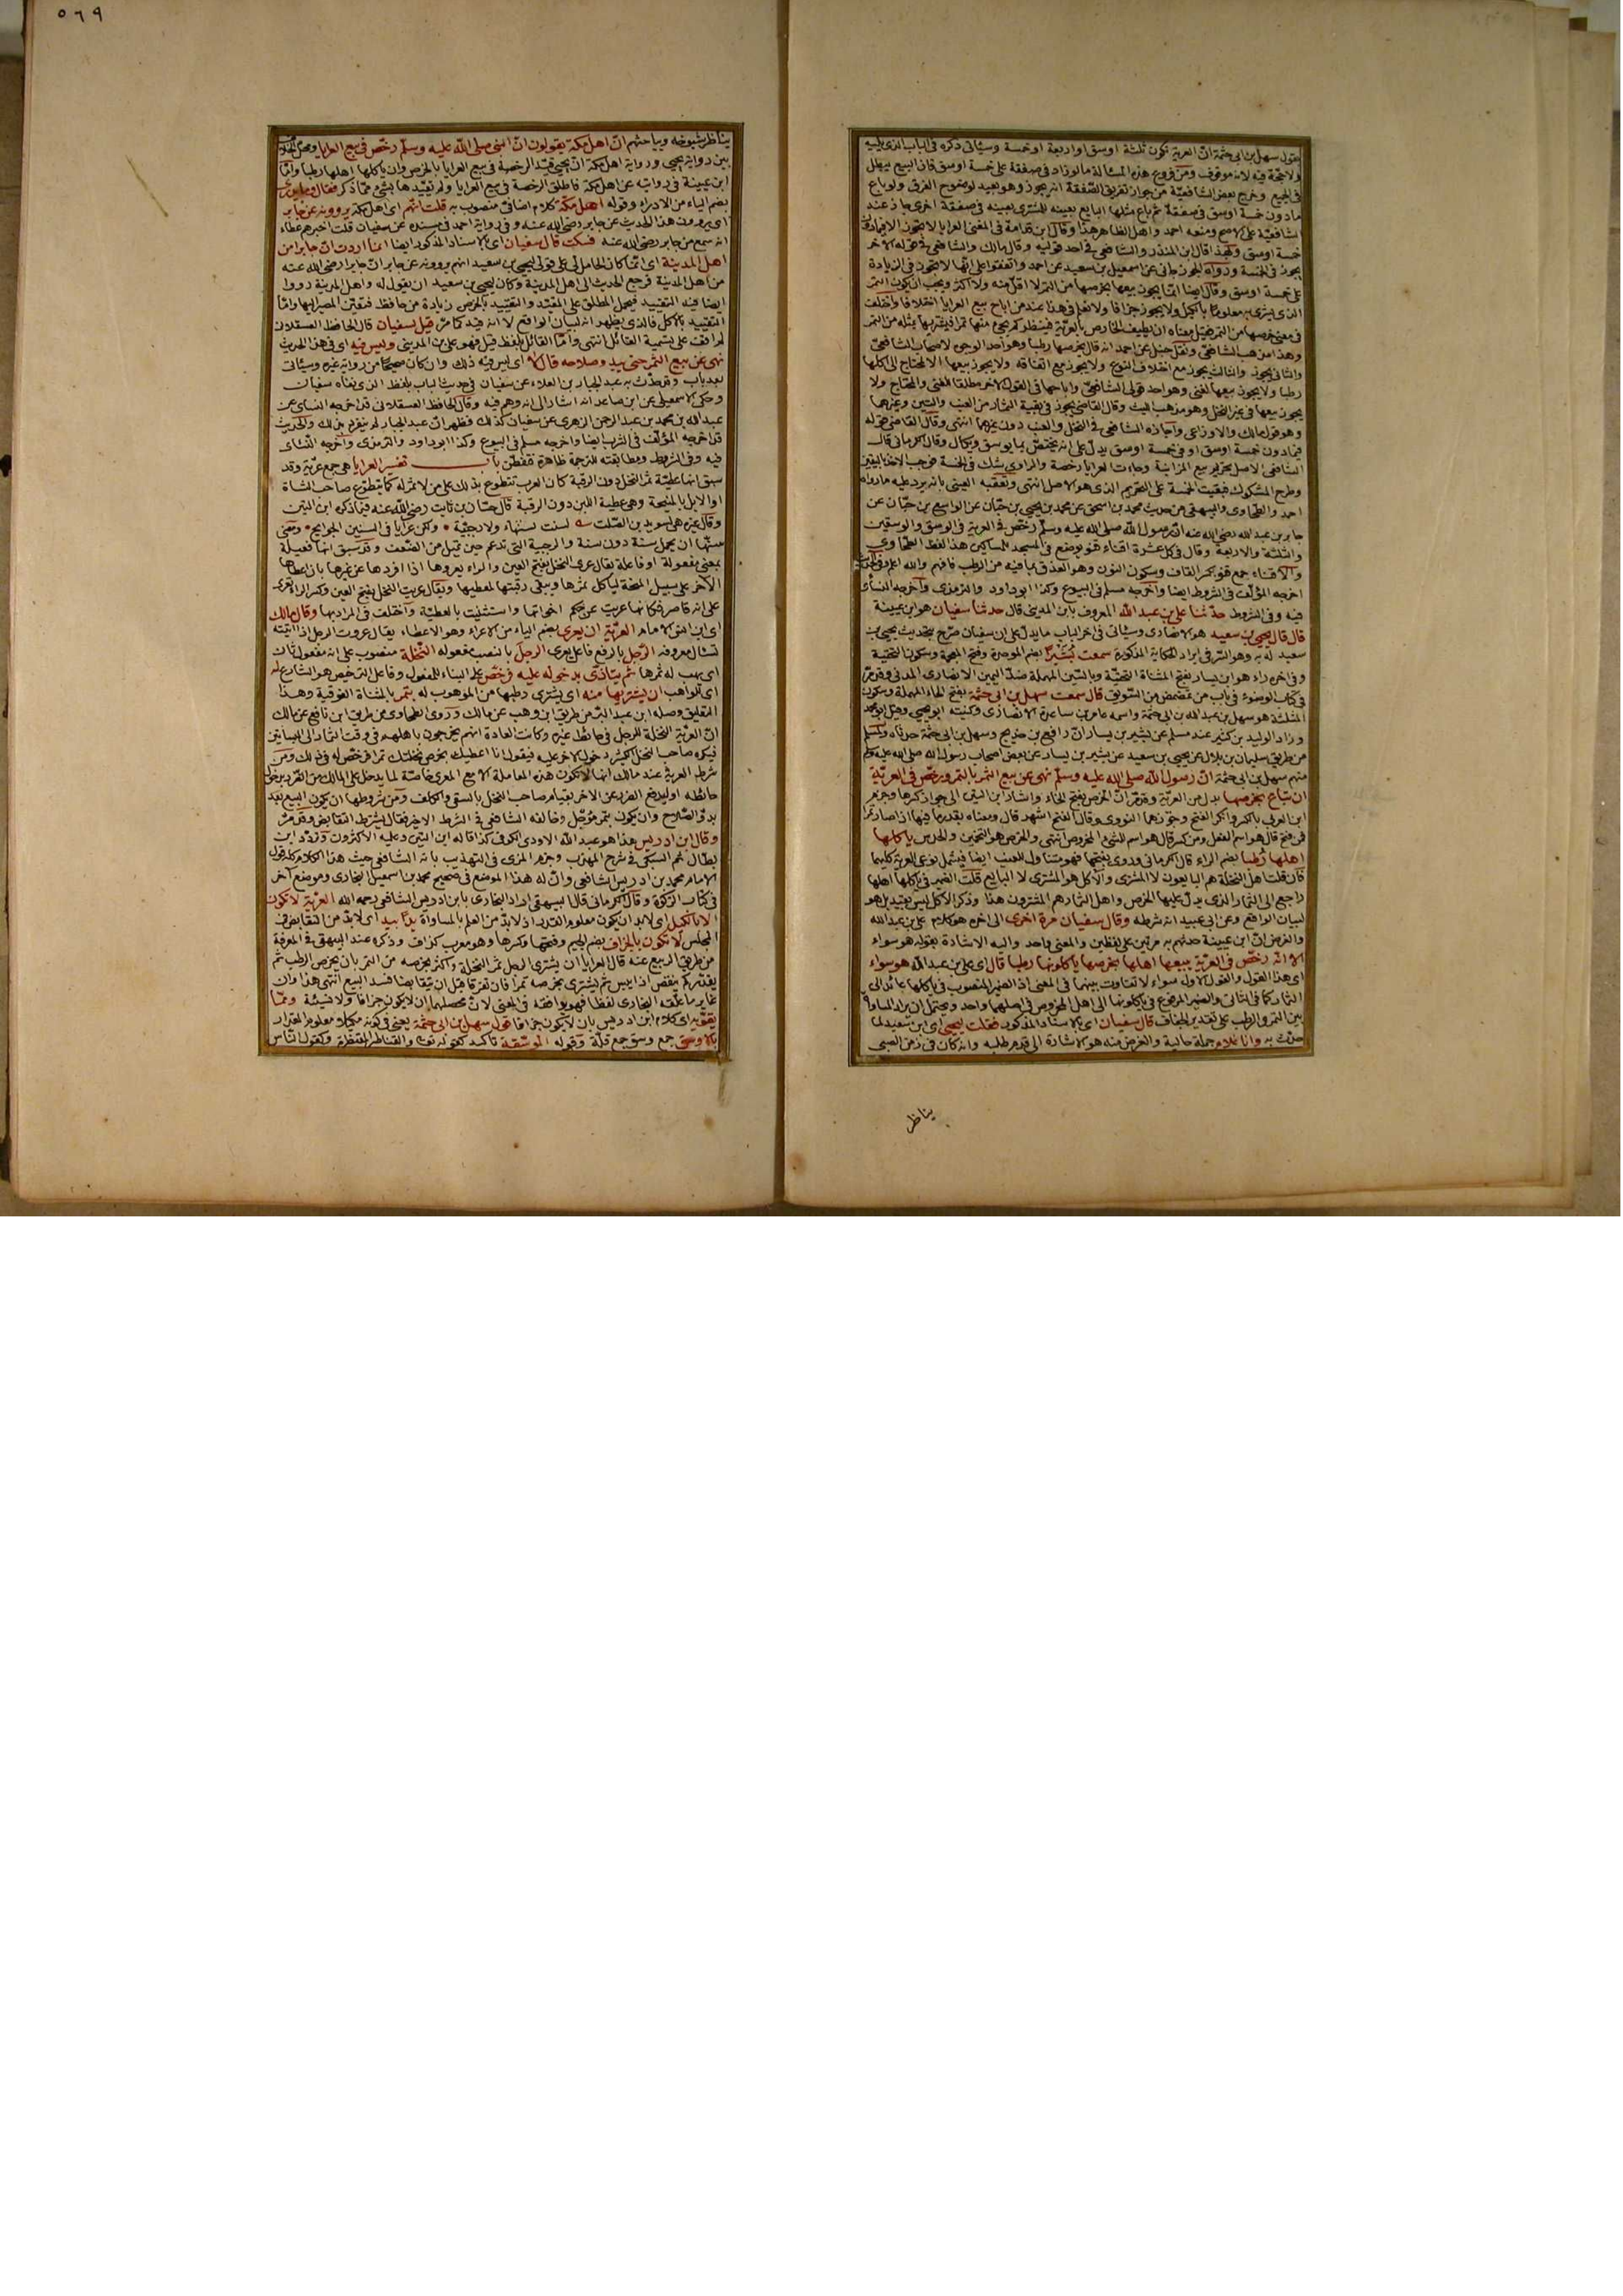 يقول سهل بن ابى حثمة انّ العرية تكون ثلثة اوسق او اربعة او خمسة وسيأتى ذكره فى الباب الذى يليه
ولا حجّة فيه لانه موقوف ومن فروع هذه المسألة ما لو زاد فى صفقة على خمسة اوسق فان البيع يبطل
فى الجميع وخرج بعض الشافعيّة من جواز تفريق الصّفقة انه يجوز وهو بعيد لوضوح الفرق ولو باع
ما دون خمسة اوسق فى صفقة ثم باع مثلها البايع بعينه للمشترى بعينه فى صفقة اخرى جاز عند
الشافعيّة على الاصح ومنعه احمد واهل الظاهر هذا وقال ابن قدامة فى المغنى العرايا لا تجوز الا فيما دون
خمسة اوسق وبهذا قال ابن المنذر والشافعى فى احد قوليه وقال مالك والشافعى فى قوله الآخر
يجوز فى الخمسة ورواه الجوزجانى عن اسمعيل بن سعيد عن احمد واتفقوا على انّها لا تجوز فى الزيادة
على خمسة اوسق وقال ايضا انّما يجوز بيعها بخرصها من التمر لا اقلّ منه ولا اكثر ويجب ان يكون التمر
الذى يشترى به معلومًا بالكيل ولا يجوز جزافا ولا نعلم فى هذا عند من اباح بيع العرايا اختلافا واختلف
فى معنى خرصها من التمر فقيل معناه ان يطيف الخارص بالعريّة فينظر كم يجئ منها تمرا فيشتريها بمثله من التمر
وهذا مذهب الشافعىّ ونقل حنبل عن احمد انه قال يخرصها رطبا وهو احد الوجوه لاصحاب الشافعىّ
والثانى يجوز والثالث يجوز مع اختلاف النوع ولا يجوز مع اتفاقه ولا يجوز بيعها الا لمحتاج الى اكلها
رطبا ولا يجوز بيعها لغنى وهو احد قولى الشافعىّ واباحها فى القول الآخر مطلقا للغنى والمحتاج ولا
يجوز بيعها فى غير النخل وهو مذهب الليث وقال القاضى يجوز فى بقية الثمار من العنب والتين وغيرهما
وهو قول مالك والاوزاعى واجازه الشافعى فى النخل والعنب دون غيرهما انتهى وقال القاضى قوله
فيما دون خمسة اوسق او فى خمسة اوسق يدلّ على انه يختصّ بما يوسق ويكال وقال الكرمانى قال
الشافعى الاصل تحريم بيع المزابنة وجاءت العرايا رخصة والراوى شك فى الخمسة فوجب الاخذ باليقين
وطرح المشكوك فبقيت الخمسة على التحريم الذى هو الاصل انتهى وتعقبه العينى بانه يرد عليه ما رواه
احمد والطحاوى والبيهقى من حديث محمد بن اسحق عن محمد بن يحيى بن حبّان عن الواسع بن حبّان عن
جابر بن عبد الله رضى الله عنه انّ رسول الله صلى الله عليه وسلّم رخّص فى العرية فى الوسق والوسقين
والثلثة والاربعة وقال فى كل عشرة اقناء قنو يوضع فى المسجد للمساكين هذا لفظ الطحاوى
والاقناء جمع قنو بكسر القاف وسكون النون وهو العذق بما فيه من الرطب فافهم والله اعلم
اخرجه المؤلّف فى الشروط ايضا واخرجه مسلم فى البيوع وكذا ابو داود والترمذى واخرجه النسائى
فيه وفى الشروط حدّثنا على بن عبد الله المعروف بابن المدينى قال حدثنا سفيان هو ابن عيينة
قال قال يحيى بن سعيد هو الانصارى وسيأتى فى آخر الباب ما يدلّ على ان سفيان صرّح بتحديث يحيى بن
سعيد له به وهو السّر فى ايراد الحكاية المذكورة سمعت بُشَيْرًا بضم الموحدة وفتح المعجمة وسكون التحتية
وفى آخره راء هو ابن يسار بفتح المثناة التحتيّة وبالسّين المهملة ضدّ اليمين الانصارى المدنى وقد مرّ
فى كتاب الوضوء فى باب من مضمض من السّويق قال سمعت سهل بن ابى حثمة بفتح الحاء المهملة وسكون
المثلّثة هو سهل بن عبد الله بن ابى حثمة واسمه عامر بن ساعدة الانصارى وكنيته ابو يحيى وقيل ابو محمد
وزاد الوليد بن كثير عند مسلم عن بشير بن يسار انّ رافع بن خديج وسهل بن ابى حثمة حدثاه ولمسلم
من طريق سليمان بن بلال عن يحيى بن سعيد عن بشير بن يسار عن بعض اصحاب رسول الله صلى الله عليه وسلم
منهم سهل بن ابى حثمة انّ رسول الله صلى الله عليه وسلّم نهى عن بيع الثمر بالتمر ورخّص فى العريّة
ان تباع بخرصها بدل من العريّة وقد مرّ انّ الخرص بفتح الخاء واشار ابن التين الى جواز كسرها وجزم
ابن العربى بالكسر وانكر الفتح وجوّزهما النووى وقال الفتح اشهر قال ومعناه بقدر ما فيها اذا صار تمرا
فمن فتح قال هو اسم الفعل ومن كسر قال هو اسم للشئ المخروص انتهى والخرص هو التخمين والحدس ياكلها
اهلها رُطبا بضم الراء قال الكرمانى وروى بفتحها فهو متناول للعنب ايضا فيشمل نوعى العرية كليهما
فان قلت اهل النخلة هم البايعون لا المشترى والآكل هو المشترى لا البايع قلت الضمير فى ياكلها اهلها
راجع الى الثمار الذى يدلّ عليها الخرص واهل الثمار هم المشترون هذا وذكر الاكل ليس بقيد بل هو
لبيان الواقع وعن ابى عبيد انه شرطه وقال سفيان مرة اخرى الى آخره هو كلام على بن عبد الله
والغرض انّ ابن عيينة حدثهم به مرتين على لفظين والمعنى واحد واليه الاشارة بقوله هو سواء
الا انّه رخّص فى العريّة يبيعها اهلها بخرصها ياكلونها رطبا قال اى على بن عبد الله هو سواء
اى هذا القول والقول الاول سواء لا تفاوت بينهما فى المعنى اذ الضمير المنصوب فى ياكلها عائد الى
الثمار كما فى الثانى والضمير المرفوع فى ياكلونها الى اهل المخروص فى اصلهما واحد ويحتمل ان يراد المساواة
بين التمر والرطب على تقدير الجفاف قال سفيان اى بالاسناد المذكور فقلت ليحيى اى ابن سعيد لما
حدّث به وانا غلام جملة حالية والغرض منه هو الاشارة الى قدم طلبه وانه كان فى زمن الصبى
يناظر
٥٦٩
يناظر شيوخه ويباحثهم انّ اهل مكة يقولون انّ النبى صلى الله عليه وسلّم رخّص فى بيع العرايا ومحل الخلاف
بين رواية يحيى ورواية اهل مكة انّ يحيى قيّد الرخصة فى بيع العرايا بالخرص وان ياكلها اهلها رطبا وامّا
ابن عيينة فى روايته عن اهل مكة فاطلق الرخصة فى بيع العرايا ولم يقيّدها بشئ ممّا ذكر فقال وما يدرى
بضم الياء من الادراء وقوله اهل مكّة كلام اضافى منصوب به قلت انّهم اى اهل مكة يروونه عن جابر
اى يروون هذا الحديث عن جابر رضى الله عنه وفى رواية احمد فى مسنده عن سفيان قلت اخبرهم عطاء
انه سمع من جابر رضى الله عنه فسكت قال سفيان اى بالاسناد المذكور ايضا انما اردت انّ جابرا من
اهل المدينة اى انّما كان الحامل لى على قولى ليحيى بن سعيد انهم يروونه عن جابر انّ جابرا رضى الله عنه
من اهل المدينة فرجع الحديث الى اهل المدينة وكان ليحيى بن سعيد ان يقول له واهل المدينة رووا
ايضا فيه التقييد فيحمل المطلق على المقيّد والتقييد بالخرص زيادة من حافظ فتعيّن المصير اليها وامّا
التقييد بالاكل فالذى يظهر انه لبيان الواقع لا انه قيد كما مرّ قيل لسفيان قال الحافظ العسقلانى
لم اقف على تسمية القائل انتهى وامّا القائل بلفظ قيل فهو على بن المدينى وليس فيه اى فى هذا الحديث
نهى عن بيع الثمر حتى يبدو صلاحه قال لا اى ليس فيه ذلك وان كان صحيحًا من رواية غيره وسيأتى
بعد باب وقد حدّث به عبد الجبار بن العلاء عن سفيان فى حديث الباب بلفظ الذى نفاه سفيان
وحكى الاسمعيلى عن ابن صاعد انه اشار الى انه وهم فيه وقال الحافظ العسقلانى قد اخرجه النسائى عن
عبد الله بن محمد بن عبد الرحمن الزهرى عن سفيان كذلك فظهر انّ عبد الجبار لم ينفرد بذلك والحديث
قد اخرجه المؤلّف فى الشرب ايضا واخرجه مسلم فى البيوع وكذا ابو داود والترمذى واخرجه النسائى
فيه وفى الشروط ومطابقته للترجمة ظاهرة فتفطّن باب تفسير العرايا هى جمع عريّة وقد
سبق انها عطيّة ثمر النخل دون الرقبة كان العرب تتطوّع بذلك على من لا ثمر له كما يتطوّع صاحب الشاة
او الابل بالمنيحة وهى عطية اللبن دون الرقبة قال حسّان بن ثابت رضى الله عنه فيما ذكره ابن التين
وقال غيره هى لسويد بن الصّلت ليست بسنهاء ولا رجبيّة ولكن عرايا فى السنين الجوايح ومعنى
سنها ان تحمل سنة دون سنة والرجبية التى تدعم حين تميل من الضّعف وقد سبق انها فعيلة
بمعنى مفعولة او فاعلة يقال عرى النخل بفتح العين والراء يعروها اذا افردها عن غيرها بان اعطاها
لآخر على سبيل المنحة لياكل ثمرها وتبقى رقبتها لمعطيها ويقال عريت النخل بفتح العين وكسر الراء تعرى
على انه قاصر فكانها عريت عن حكم اخواتها واستثنيت بالعطيّة واختلف فى المراد بها وقال مالك
اى ابن انس الامام العريّة ان يعرى بضم الياء من الاعراء وهو الاعطاء يقال عروت الرجل اذا اتيته
تسأل معروفه الرّجل بالرفع فاعل يعرى الرجلَ بالنصب مفعوله النّخلة منصوب على انه مفعول ثان
اى يهب له ثمرها ثم يتأذّى بدخوله عليه فرخّص على البناء للمفعول وفاعل الترخيص هو الشارع له
اى للواهب ان يشتريها منه اى يشترى رطبها من الموهوب له بتمر بالمثناة الفوقية وهذا
التعليق وصله ابن عبد البرّ من طريق ابن وهب عن مالك وروى الطحاوى من طريق ابن نافع عن مالك
انّ العريّة النخلة للرجل فى حائط غيره وكانت العادة انهم يخرجون باهلهم فى وقت الثمار الى البساتين
فيكره صاحب النخل الكثير دخول الآخر عليه فيقول انا اعطيك بخرص نخلتك تمرا فرخّص له فى ذلك ومن
شرط العرية عند مالك انها لا تكون هذه المعاملة الا مع المعرى خاصّة لما يدخل على المالك من الضرر بدخول
حائطه او ليدفع الضرر عن الآخر بقيام صاحب النخل بالسقى والكلف ومن شروطها ان يكون البيع بعد
بدوّ الصّلاح وان يكون بتمر مؤجّل وخالفه الشافعى فى الشرط الاخير فقال يشترط التقابض وقد مرّ
وقال ابن ادريس هذا هو عبد الله الاودى الكوفى كذا قاله ابن التين وعليه الاكثرون وتردّد ابن
بطال ثم السبكى فى شرح المهذب وجزم المزى فى التهذيب بانه الشافعى حيث هذا الكلام كله قول
الامام محمد بن ادريس الشافعى وانّ له هذا الموضع فى صحيح محمد بن اسمعيل البخارى وموضع آخر
فى كتاب الزكوة وقال الكرمانى قال البيهقى اراد البخارى بابن ادريس الشافعى رحمه الله العريّة لا تكون
الا بالكيل اى لابد ان يكون معلوم القدر اذ لابدّ من العلم بالمساواة يدًا بيد اى لابدّ من التقابض فى
المجلس لا تكون بالجزاف بضم الجيم وفتحها وكسرها وهو معرب كزاف وذكره عند البيهقى فى المعرفة
من طريق الربيع عنه قال العرايا ان يشترى الرجل ثمر النخلة واكثر بخرصه من التمر بان يخرص الرطب ثم
يقدّر كم ينقص اذا يبس ثم يشترى بخرصه تمرا فان تفرقا قبل ان يتقابضا فسد البيع انتهى هذا وان
غاير ما علّقه البخارى لفظا فهو يوافقه فى المعنى لانّ محصلهما ان لا يكون جزافا ولا نسيئة وممّا
يقوّيه اى كلام ابن ادريس بان لا يكون جزافا قول سهل بن ابى حثمة يعنى فى كونه مكيلا معلوم المقدار
بالاوسق جمع وسق جمع قلّة وقوله الموسّقة تاكيد كقوله تعالى والقناطير المقنطرة وكقول الناس